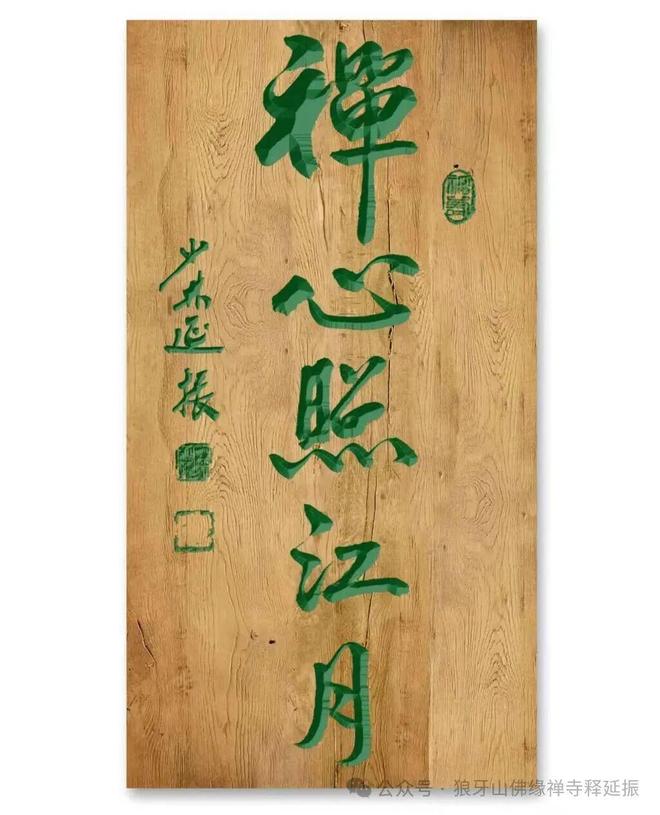 禪心照江月
少林延振
公众号·狼牙山佛缘禅寺释延振